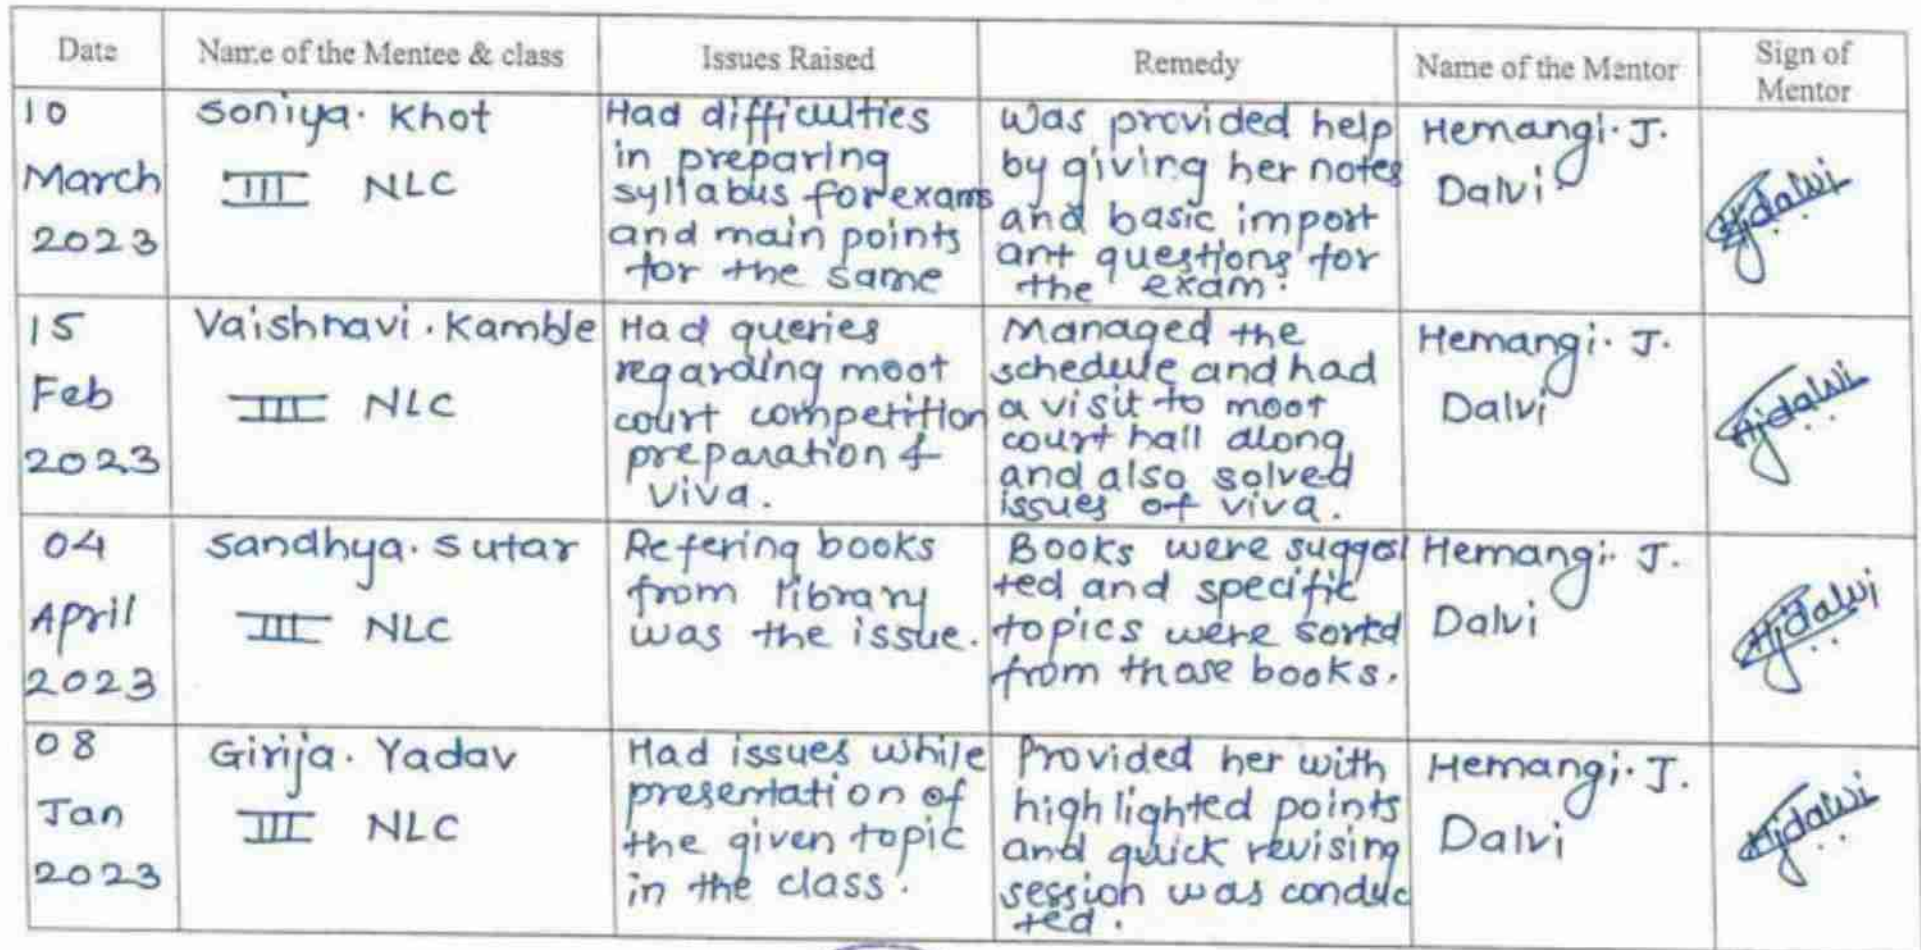 Date
Name of the Mentee & class
Issues Raised
Remedy
Name of the Mentor
Sign of
Mentor
10
March
2023
Soniya. Khot
III NLC
Had difficulties
in preparing
syllabus for exams
and main points
for the same
was provided help
by giving her notes
and basic import
ant questions for
the exam.
Hemangi. J.
Dalvi
Hjdalvi
15
Feb
2023
Vaishnavi. Kamble
III NLC
Had queries
regarding moot
court competition
preparation &
viva.
Managed the
schedule and had
a visit to moot
court hall along
and also solved
issues of viva.
Hemangi. J.
Dalvi
Hjdalvi
04
April
2023
Sandhya. Sutar
III NLC
Refering books
from library
was the issue.
Books were sugges
ted and specific
topics were sorted
from those books.
Hemangi. J.
Dalvi
Hjdalvi
08
Jan
2023
Girija. Yadav
III NLC
Had issues while
presentation of
the given topic
in the class.
Provided her with
highlighted points
and quick revising
session was conduc
ted.
Hemangi. J.
Dalvi
Hjdalvi